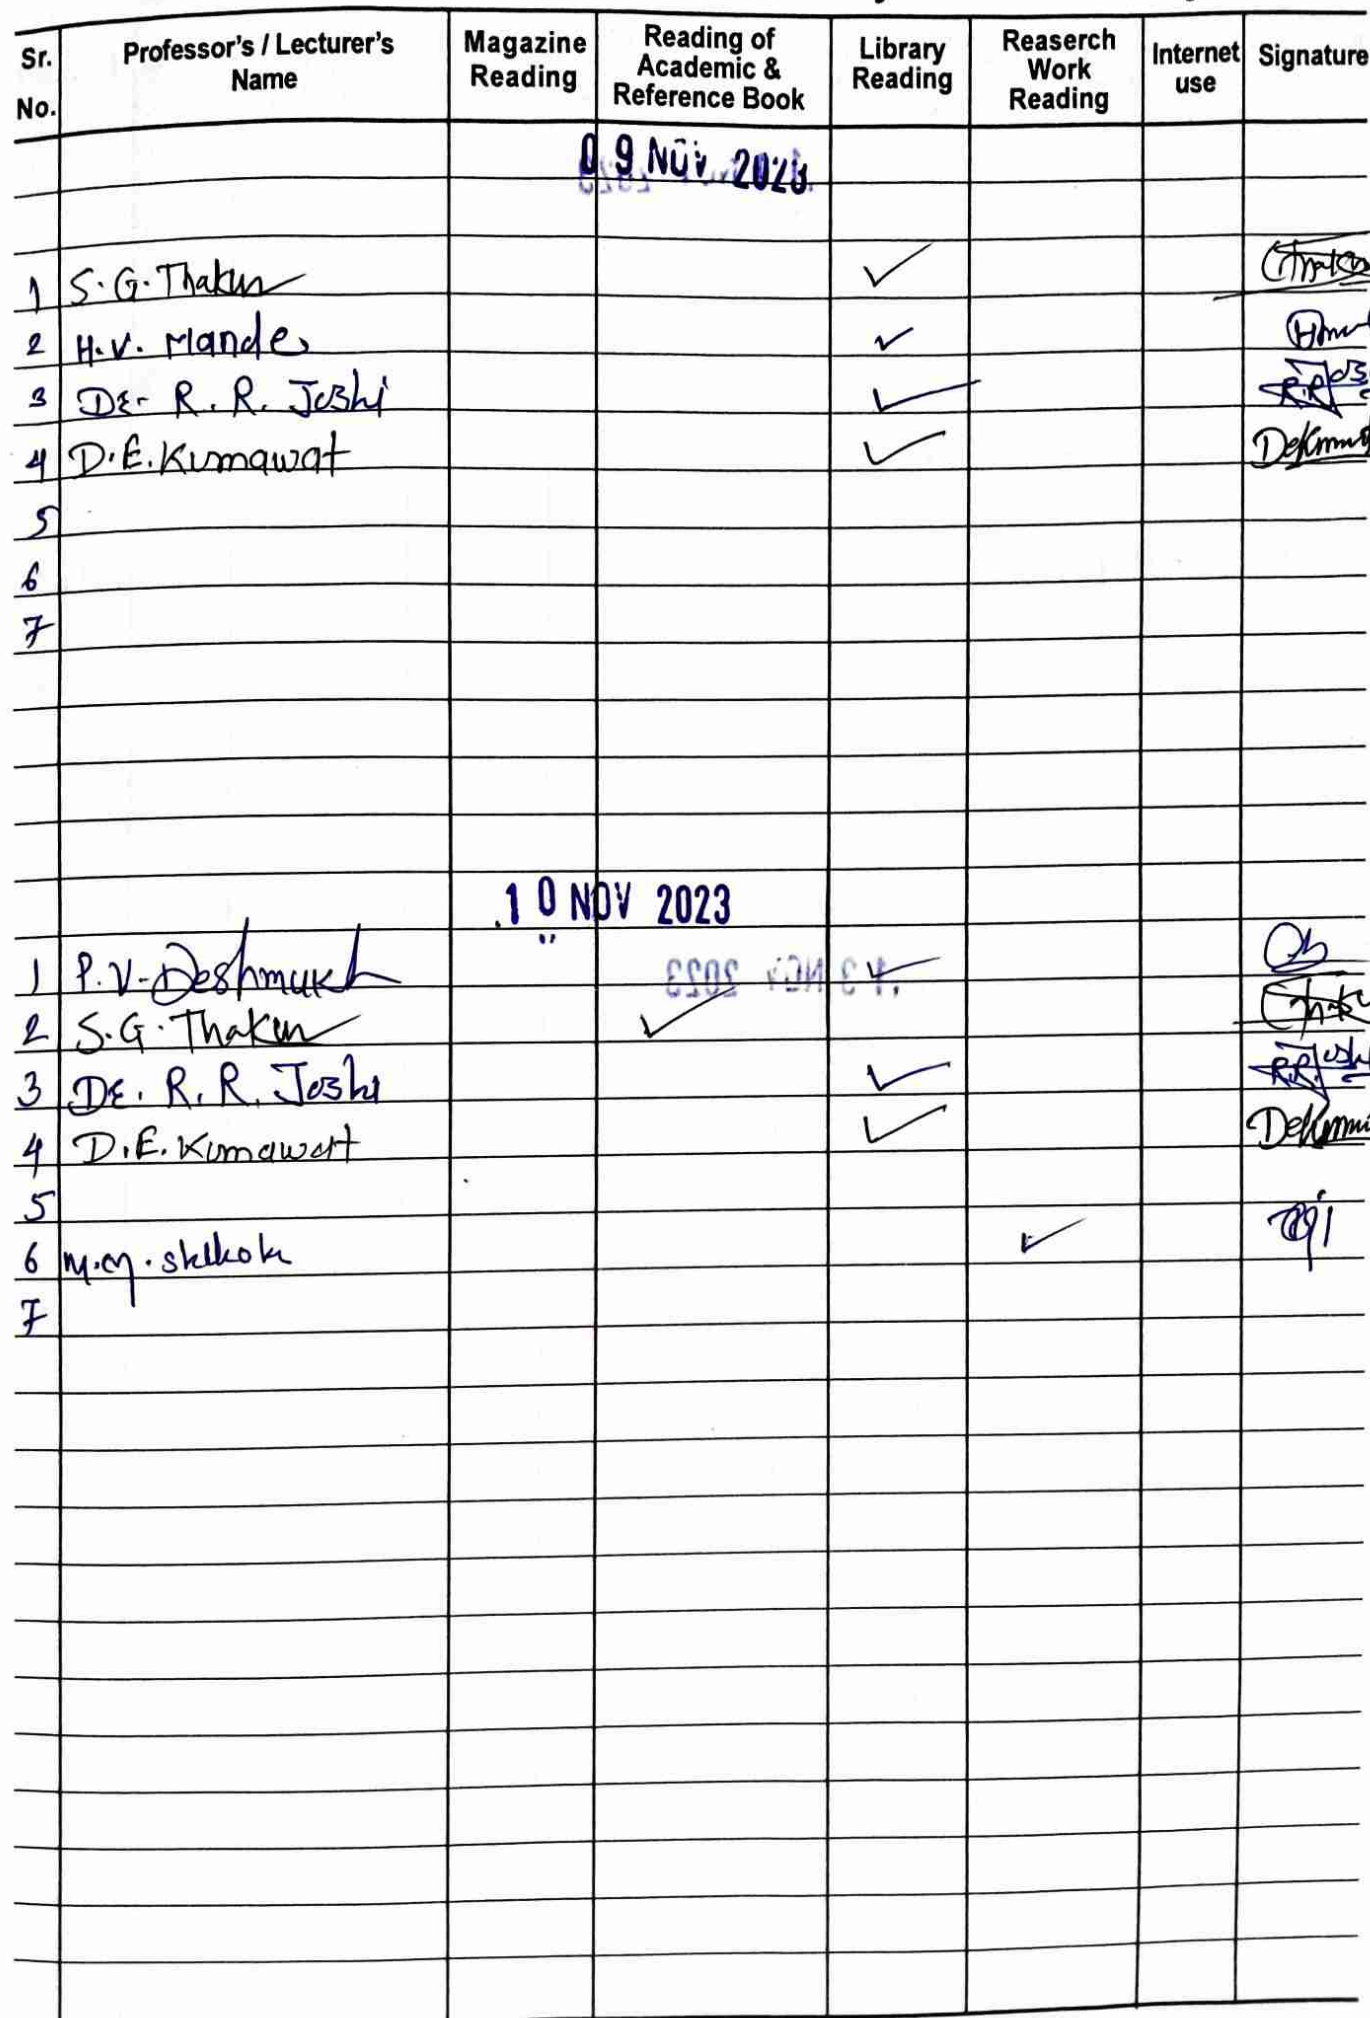 Sr. No. Professor's / Lecturer's Name Magazine Reading Reading of Academic & Reference Book Library Reading Reaserch Work Reading Internet use Signature
09 NOV 2023
1 S.G. Thakur ✓
2 H.V. Mande ✓
3 Dr. R. R. Joshi ✓
4 D.E. Kumawat ✓
5
6
7
10 NOV 2023
1 P.V. Deshmukh ✓
13 NOV 2023
2 S.G. Thakur ✓
3 Dr. R. R. Joshi ✓
4 D.E. Kumawat ✓
5
6 ✓
7